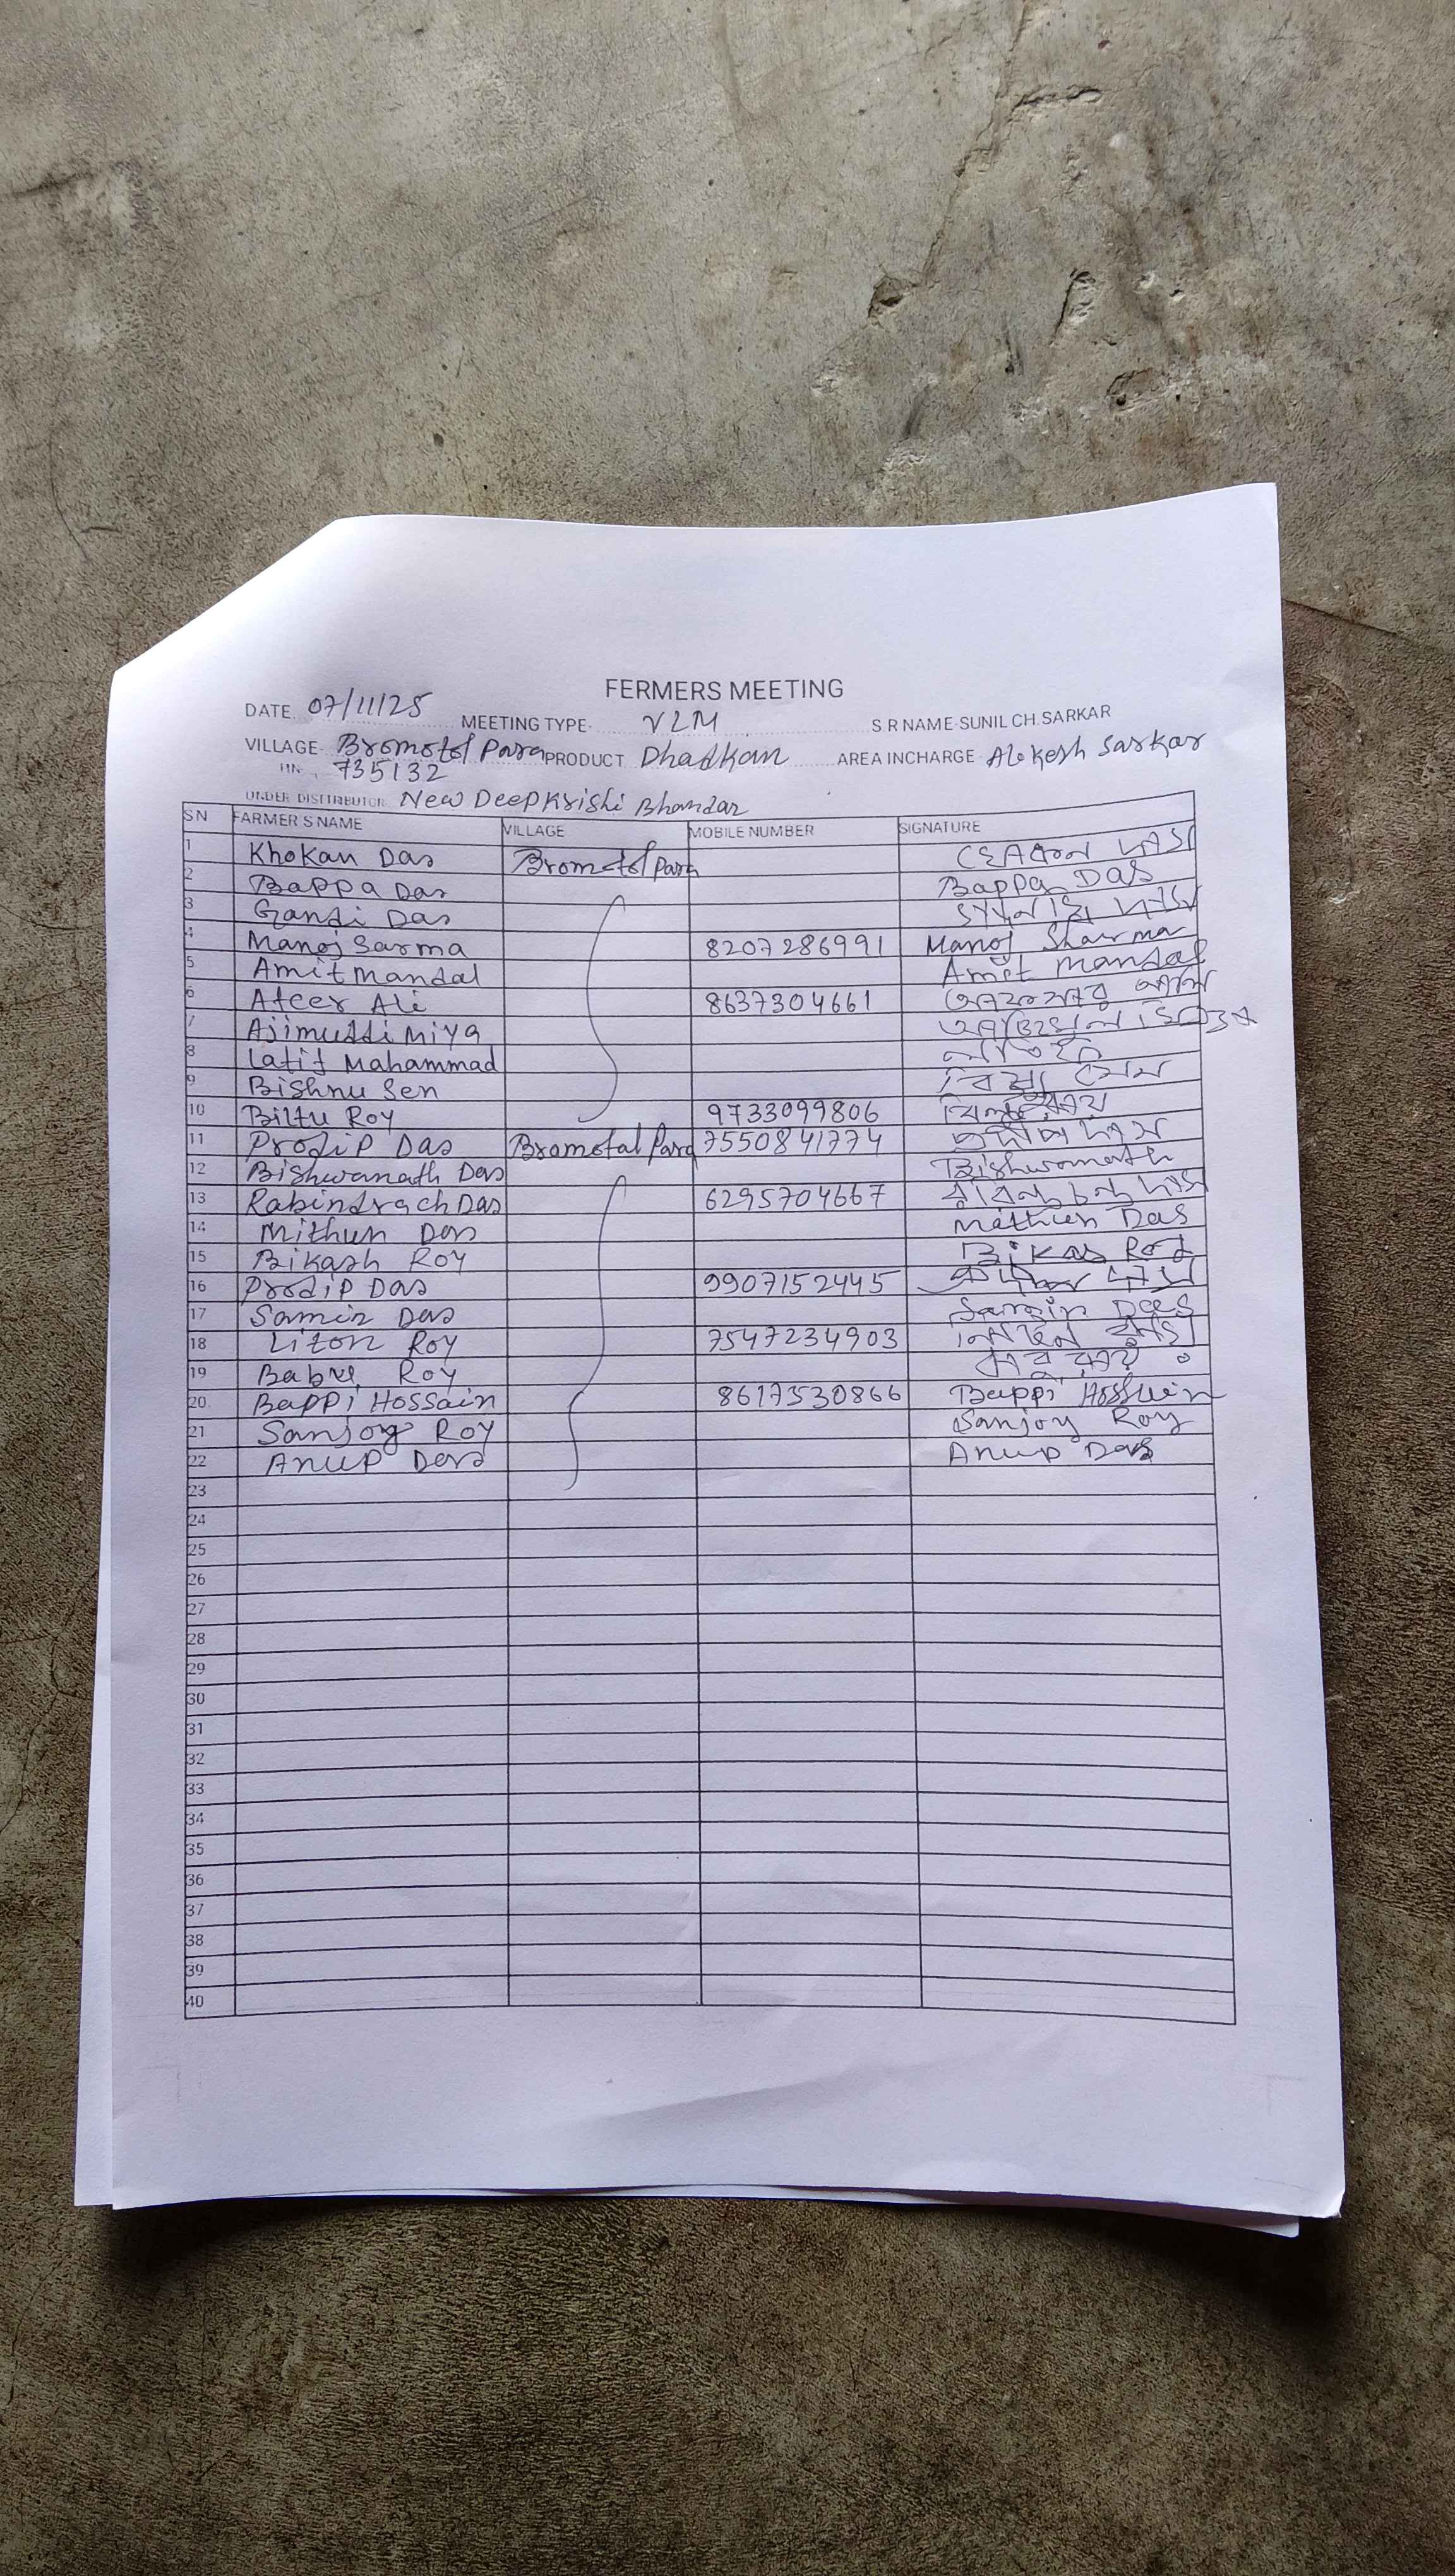 FERMERS MEETING
DATE 07/11/25 MEETING TYPE- VLM S R NAME-SUNIL CH. SARKAR
VILLAGE- Bromotol Para PRODUCT Dhadkan AREA INCHARGE- Alokesh Sarkar
735132
UNDER DISTTRIBUTOR New Deep Krishi Bhandar
SN FARMER'S NAME VILLAGE MOBILE NUMBER SIGNATURE
1 Khokan Das Bromotol Para
2 Bappa Das Bappa Das
3 Gandi Das
4 Manoj Sarma 8207286991 Manoj Sharma
5 Amit Mandal Amit Mandal
6 Ateer Ali 8637304661
7 Ajimuddi Miya
8 Latif Mahammad
9 Bishnu Sen
10 Biltu Roy 9733099806
11 Prodip Das Bromotal Para 7550841774
12 Bishwanath Das Bishwanath
13 Rabindrach Das 6295704667
14 Mithun Das Mithun Das
15 Bikash Roy Bikas Roy
16 Prodip Das 9907152445
17 Samir Das Samir Das
18 Liton Roy 7547234903
19 Babu Roy বাবু রায়
20 Bappi Hossain 8617530866 Bappi Hossein
21 Sanjoy Roy Sanjoy Roy
22 Anup Das Anup Das
23
24
25
26
27
28
29
30
31
32
33
34
35
36
37
38
39
40